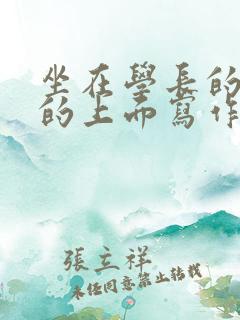 坐在學長的
的上而寫作
張立祥
未任同意禁止转载